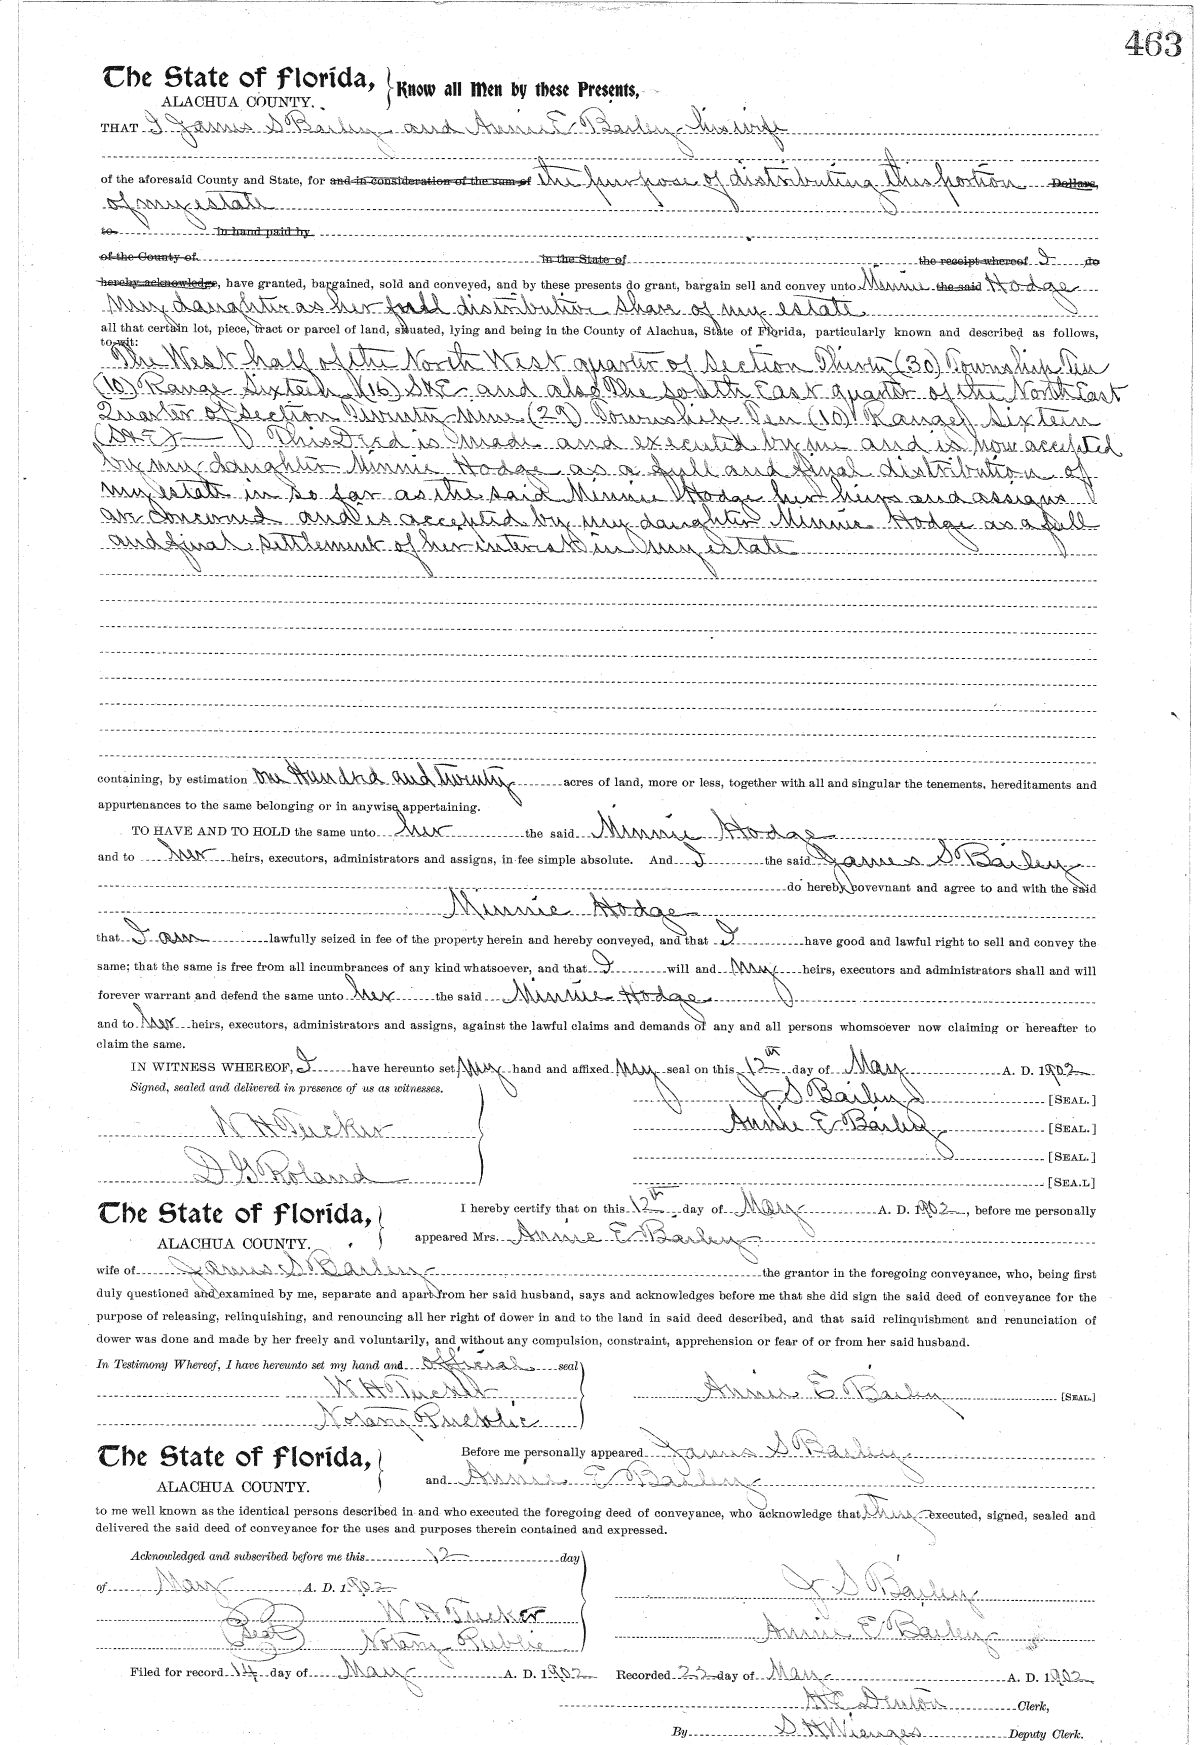 463
The State of Florida, Know all Men by these Presents,
ALACHUA COUNTY.
THAT I James S Bailey and Annie E Bailey his wife
of the aforesaid County and State, for and in consideration of the sum of the purpose of distributing this portion Dollars,
of my estate
to in hand paid by
of the County of in the State of the receipt whereof I do
hereby acknowledge, have granted, bargained, sold and conveyed, and by these presents do grant, bargain sell and convey unto Minnie the said Hodge
My daughter as her full distributive share of my estate
all that certain lot, piece, tract or parcel of land, situated, lying and being in the County of Alachua, State of Florida, particularly known and described as follows,
to-wit:
The West half of the North West quarter of Section Thirty (30) Township Ten
(10) Range Sixteen (16) S&E and also The south East quarter of the North East
Quarter of section Twenty Nine (29) Township Ten (10) Range Sixteen
(S&E) This Deed is made and executed by me and is now accepted
by my daughter Minnie Hodge as a full and final distribution of
my estate in so far as the said Minnie Hodge her heirs and assigns
are concerned and is accepted by my daughter Minnie Hodge as a full
and final settlement of her interest in my estate
containing, by estimation one Hundred and twenty acres of land, more or less, together with all and singular the tenements, hereditaments and
appurtenances to the same belonging or in anywise appertaining.
TO HAVE AND TO HOLD the same unto her the said Minnie Hodge
and to her heirs, executors, administrators and assigns, in fee simple absolute. And I the said James S Bailey
do hereby covevnant and agree to and with the said
Minnie Hodge
that I am lawfully seized in fee of the property herein and hereby conveyed, and that I have good and lawful right to sell and convey the
same; that the same is free from all incumbrances of any kind whatsoever, and that I will and my heirs, executors and administrators shall and will
forever warrant and defend the same unto her the said Minnie Hodge
and to her heirs, executors, administrators and assigns, against the lawful claims and demands of any and all persons whomsoever now claiming or hereafter to
claim the same.
IN WITNESS WHEREOF, I have hereunto set my hand and affixed my seal on this 12th day of May A. D. 1902
Signed, sealed and delivered in presence of us as witnesses. J S Bailey [SEAL.]
W H Tucker Annie E Bailey [SEAL.]
[SEAL.]
D G Roland [SEA.L]
The State of Florida, I hereby certify that on this 12th day of May A. D. 1902, before me personally
ALACHUA COUNTY. appeared Mrs. Annie E Bailey
wife of James S Bailey the grantor in the foregoing conveyance, who, being first
duly questioned and examined by me, separate and apart from her said husband, says and acknowledges before me that she did sign the said deed of conveyance for the
purpose of releasing, relinquishing, and renouncing all her right of dower in and to the land in said deed described, and that said relinquishment and renunciation of
dower was done and made by her freely and voluntarily, and without any compulsion, constraint, apprehension or fear of or from her said husband.
In Testimony Whereof, I have hereunto set my hand and official seal
W H Tucker Annie E Bailey [SEAL.]
Notary Public
The State of Florida, Before me personally appeared James S Bailey
ALACHUA COUNTY. and Annie E Bailey
to me well known as the identical persons described in and who executed the foregoing deed of conveyance, who acknowledge that they executed, signed, sealed and
delivered the said deed of conveyance for the uses and purposes therein contained and expressed.
Acknowledged and subscribed before me this 12 day
of May A. D. 1902 J S Bailey
W H Tucker
Seal Notary Public Annie E Bailey
Filed for record 14 day of May A. D. 1902 Recorded 22 day of May A. D. 1902
H C Denton Clerk,
By S H Wienges Deputy Clerk.